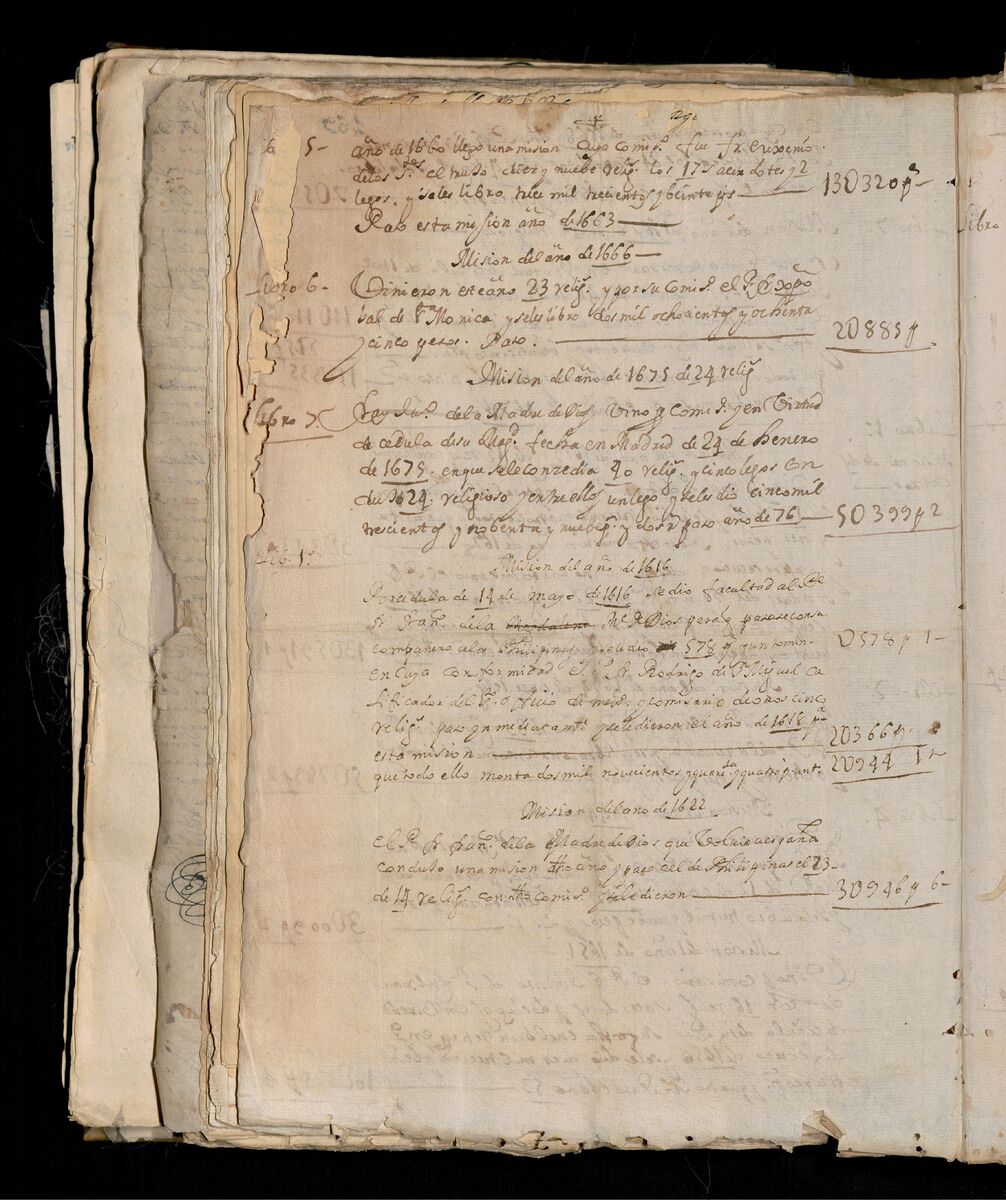 año de 1660 llego una mision cuyo Comis.º fue fr. Euxenio
delos S.tos el truxo diez y nuebe relig.s los 17 sacerdotes y 2
legos, y seles libro trece mil trecientos y beinte p.s — 130320 p.s —
Paso esta mision año de 1663 —
Mision del año de 1666 —
Libro 6 — Vinieron este año 23 relig.s y por su Comis.º el P. fr. Xpõ
bal de S.ta Monica y seles libro dos mil ochocientos y ochenta
y cinco pesos. Paso. — 20885 p.
Mision del año de 1675 de 24 relig.s
Libro Fray Ju.º dela Madre de Dios Vino por Comis.º y en Virtud
de cedula de su Mag.d fecha en Madrid de 24 de henero
de 1675. en que sele conzedia 40 relig.s y cinco legos con
duxo 24 religioso y entre ellos un lego y seles dio cinco mil
trecientos y nobenta y nuebe p.s y dos r.s paso año de 76 — 50399 p 2
Lib. 1º
Mision del año de 1616
Por cedula de 14 de mayo de 1616 se dio facultad al P.e
fr. Fran.co dela Magdalena M.e de Dios para
compañero a las Philipinas sele dio 578 p.s y un tomin — 0578 p 1 —
en cuya conformidad el P. fr. Rodrigo de S. Miguel ca
lificador del S.to Oficio de mex.co y comisario de otros cinco
relig.s paso ynmediatam.te y le dieron el año de 1618 p.a
esta mision — 20366 p.
que todo ello monta dos mil novecientos y quar.ta y quatro p. un t. 20944 1 r
Mision del año de 1622
El P. fr. Fran.co dela Madre de Dios que volvio a españa
conduxo una mision dho año y paso a el de Philipinas el 23
de 14 relig.s con dho comis.º y le dieron — 30946 p 6 —
libro